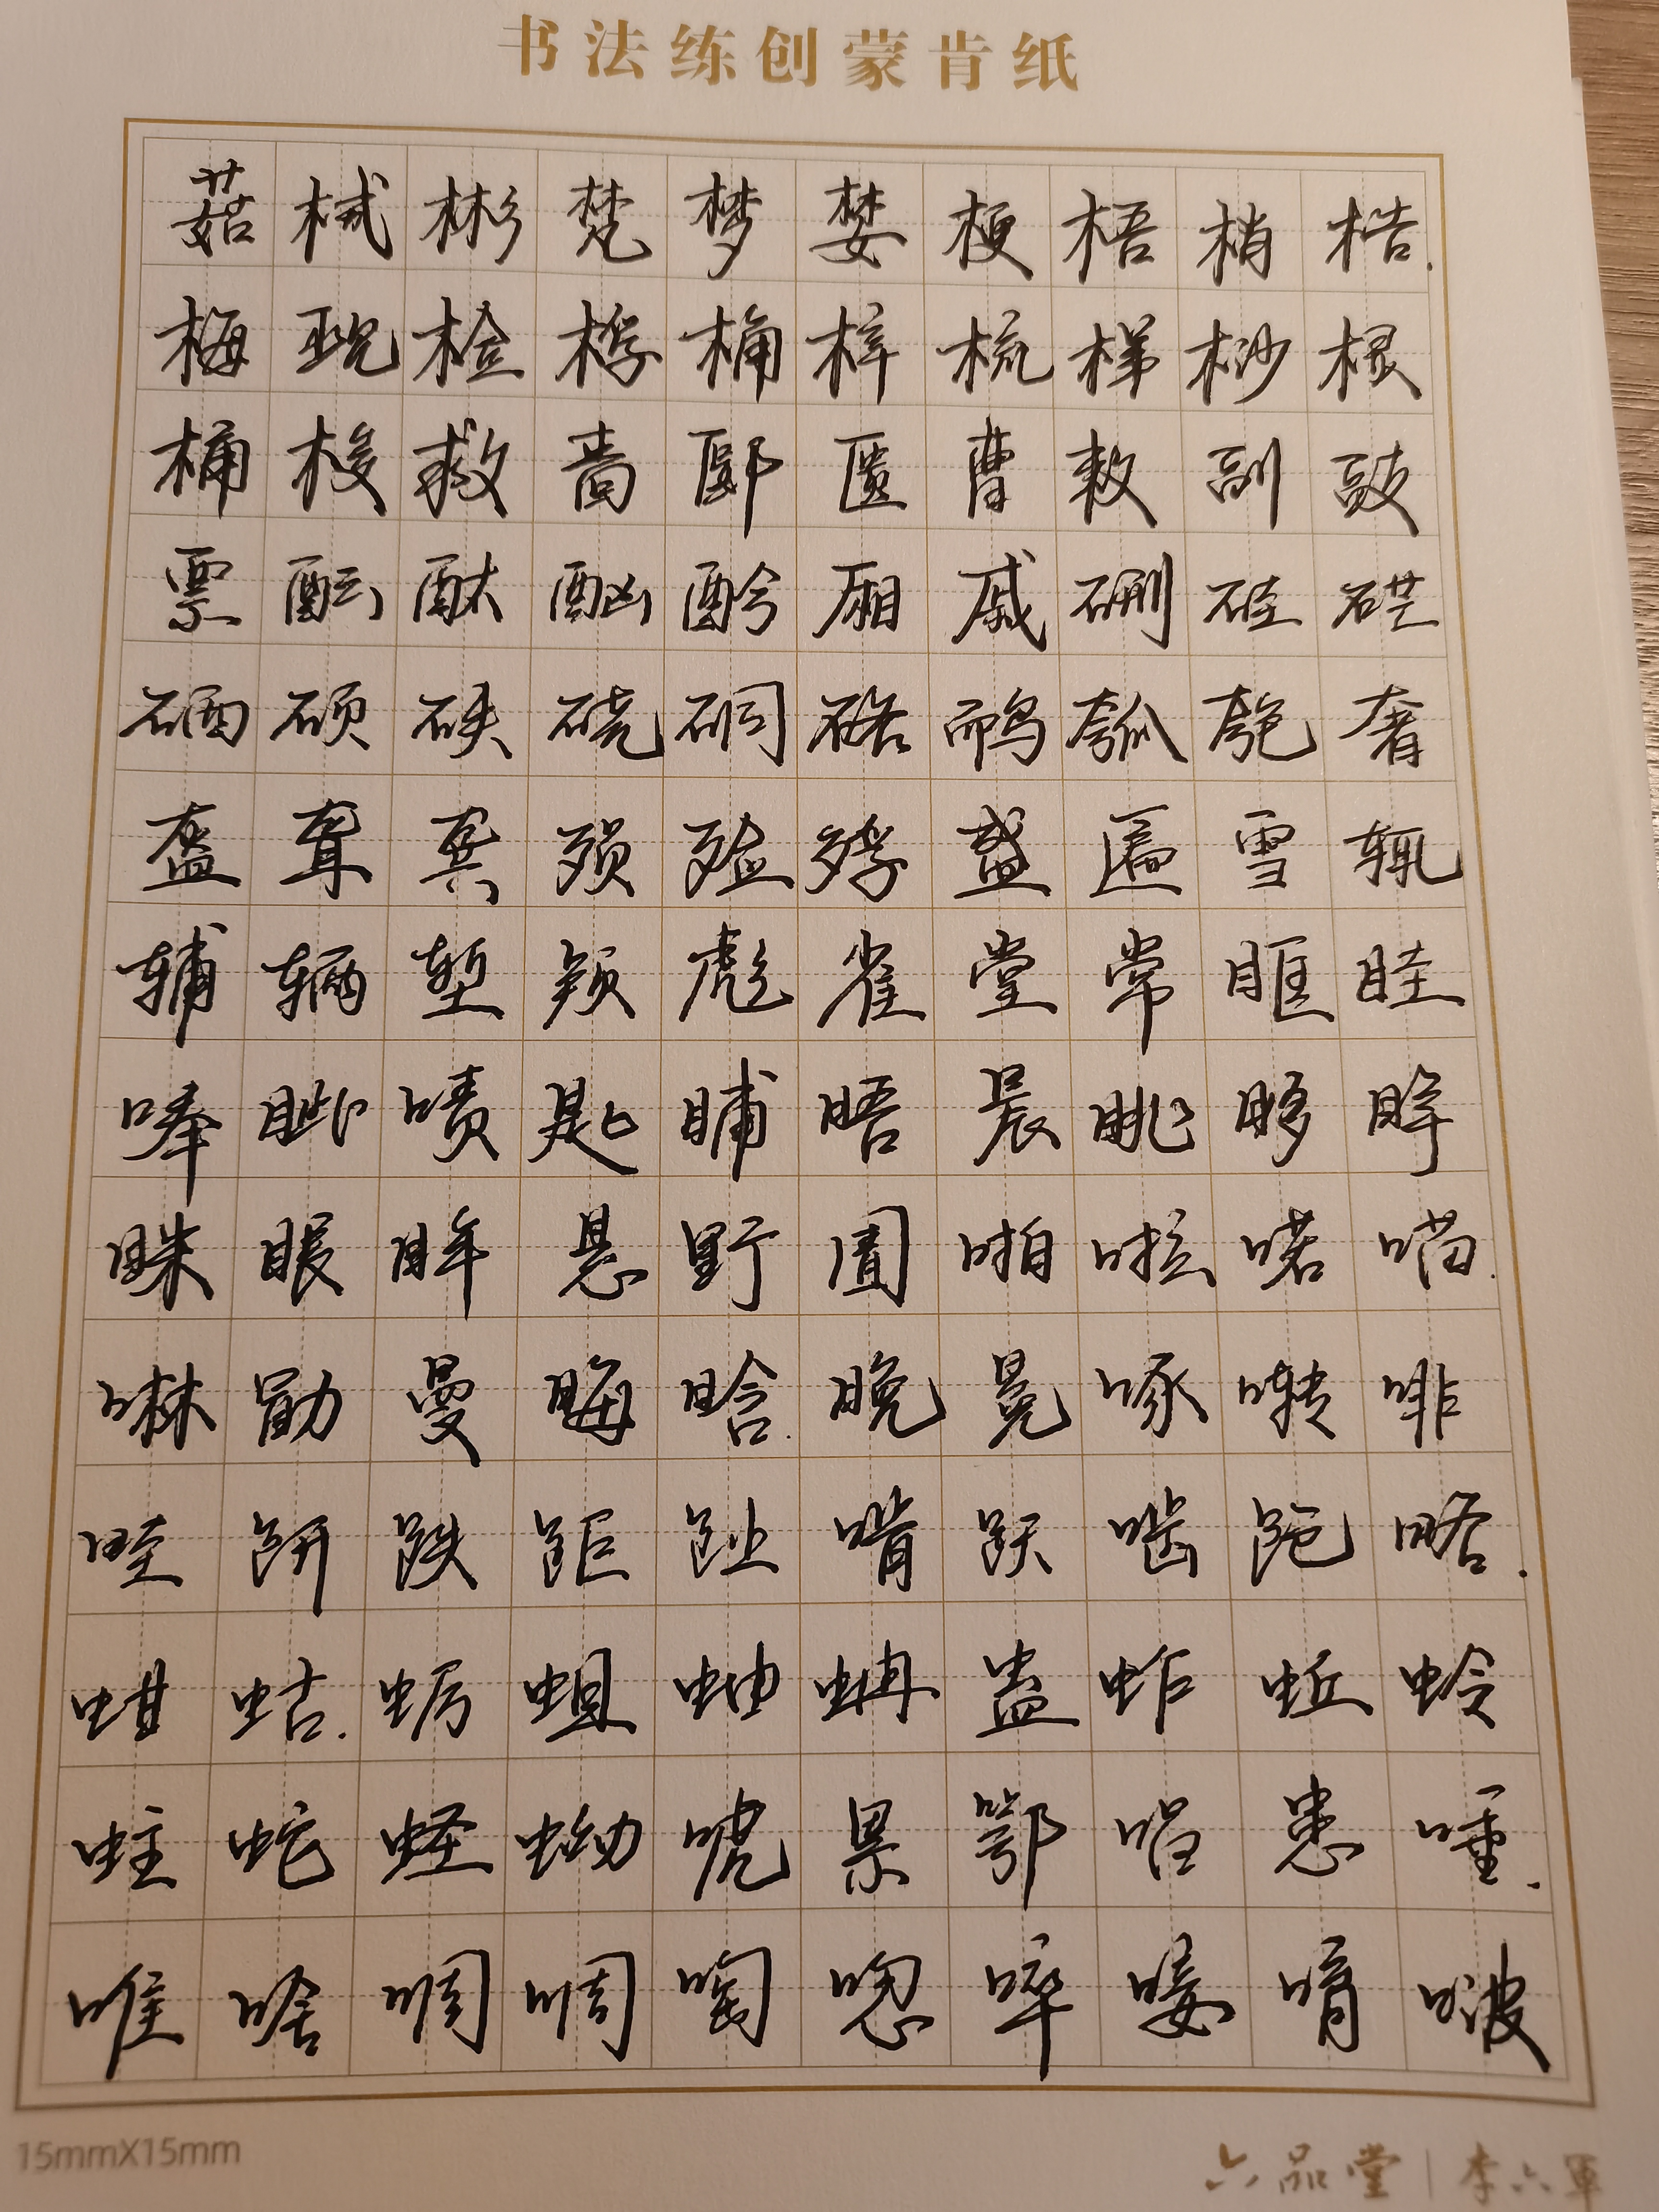 书法练创蒙肯纸
菇械彬梵梦婪梗梧梢梏
梅觋检桴桷梓梳梯桫棂
桶梭救啬郾匮曹敕副豉
票酝酞酗酚厢戚硎硅硭
硒硕硖硗硐硌鸸瓠匏奢
盔聋龚殒殓殍盛匾雪辄
辅辆堑彪雀堂常眶眭
唪眦啧匙晡晤晨眺眵睁
眯眼眸悬野圊啪啦喏喵
啉勖曼晦晗晚冕啄啭啡
畦趼趺距趾啃跃啮跄略
蚶蛄蛎蛆蚰蚺蛊蚱蚯蛉
蛀蛇蛏蚴唬累鄂唱患唾
唯啥啁啁啕唿啐唼唷啵
15mmX15mm
六品堂|李六軍